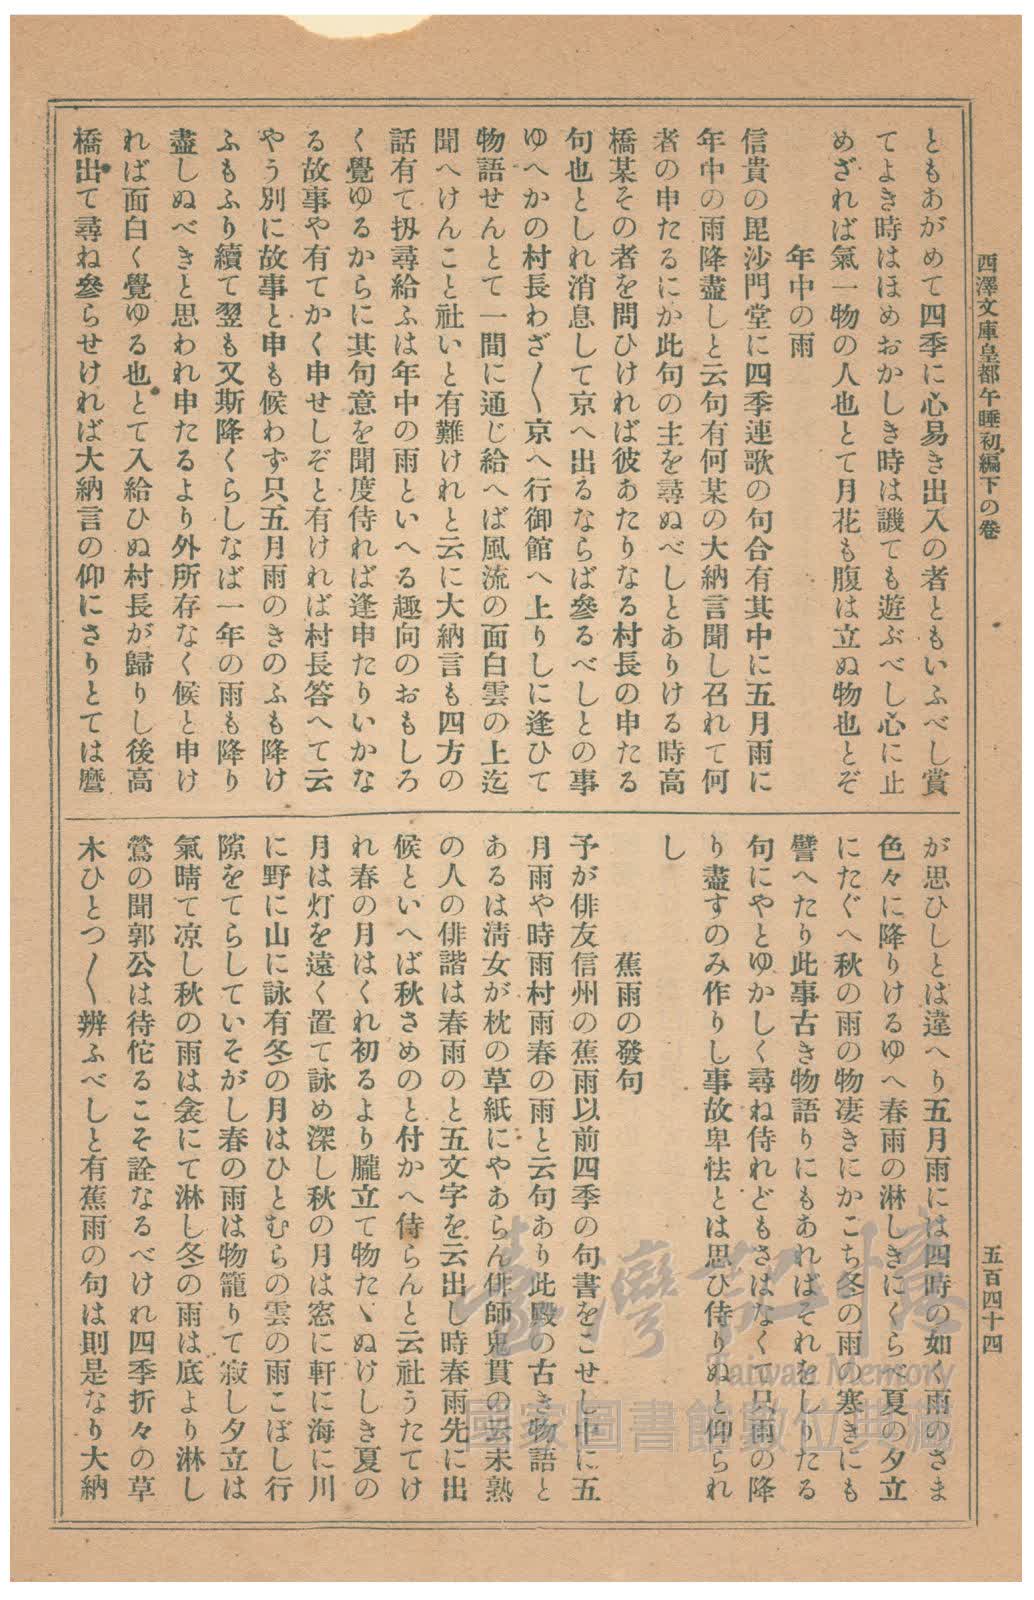 西澤文庫皇都午睡初編下の卷
五百四十四
ともあがめて四季に心易き出入の者ともいふべし賞
てよき時はほめおかしき時は譏ても遊ぶべし心に止
めざれば氣一物の人也とて月花も腹は立ぬ物也とぞ
年中の雨
信貴の毘沙門堂に四季連歌の句合有其中に五月雨に
年中の雨降盡しと云句有何某の大納言聞し召れて何
者の申たるにか此句の主を尋ぬべしとありける時高
橋某その者を問ひければ彼あたりなる村長の申たる
句也としれ消息して京へ出るならば參るべしとの事
ゆへかの村長わざ〳〵京へ行御館へ上りしに逢ひて
物語せんとて一間に通じ給へば風流の面白雲の上迄
聞へけんこと社いと有難けれと云に大納言も四方の
話有て扨尋給ふは年中の雨といへる趣向のおもしろ
く覺ゆるからに其句意を聞度侍れば逢申たりいかな
る故事や有てかく申せしぞと有ければ村長答へて云
やう別に故事と申も候わず只五月雨のきのふも降け
ふもふり續て翌も又斯降くらしなば一年の雨も降り
盡しぬべきと思われ申たるより外所存なく候と申け
れば面白く覺ゆる也とて入給ひぬ村長が歸りし後高
橋出て尋ね參らせければ大納言の仰にさりとては麿
が思ひしとは違へり五月雨には四時の如く雨のさま
色々に降りけるゆへ春雨の淋しきにくらべ夏の夕立
にたぐへ秋の雨の物凄きにかこち冬の雨の寒きにも
譬へたり此事古き物語りにもあればそれをしりたる
句にやとゆかしく尋ね侍れどもさはなくて只雨の降
り盡すのみ作りし事故卑怯とは思ひ侍りぬと仰られ
し
蕉雨の發句
予が俳友信州の蕉雨以前四季の句書をこせし中に五
月雨や時雨村雨春の雨と云句あり此殿の古き物語と
あるは淸女が枕の草紙にやあらん俳師鬼貫の云未熟
の人の俳諧は春雨のと五文字を云出し時春雨先に出
候といへば秋さめのと付かへ侍らんと云社うたてけ
れ春の月はくれ初るより朧立て物たゝぬけしき夏の
月は灯を遠く置て詠め深し秋の月は窓に軒に海に川
に野に山に詠有冬の月はひとむらの雲の雨こぼし行
隙をてらしていそがし春の雨は物籠りて寂し夕立は
氣晴て凉し秋の雨は衾にて淋し冬の雨は底より淋し
鶯の聞郭公は待佗るこそ詮なるべけれ四季折々の草
木ひとつ〳〵辨ふべしと有蕉雨の句は則是なり大納
臺灣記憶
Taiwan Memory
國家圖書館數位典藏